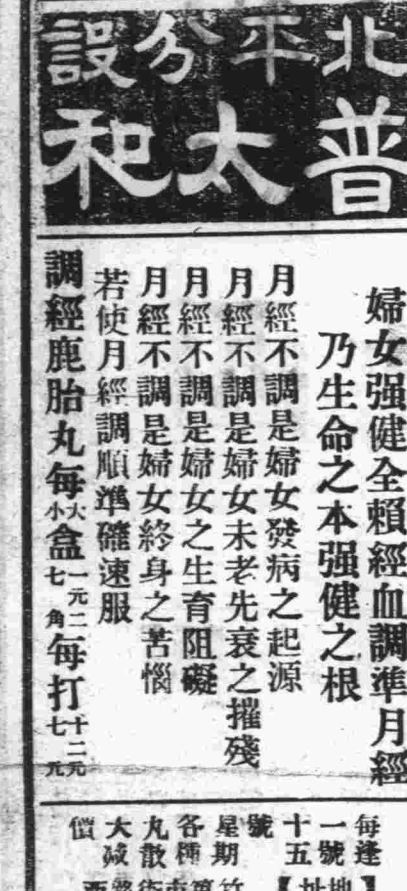 北平分設
普太和
婦女强健全賴經血調準月經
乃生命之本强健之根
月經不調是婦女發病之起源
月經不調是婦女未老先衰之摧殘
月經不調是婦女之生育阻礙
月經不調是婦女終身之苦惱
若使月經調順準確速服
調經鹿胎丸每大小盒一元二七角每打十二元七元
每逢
一號
十五
號
星期
各種
丸散
大减
價